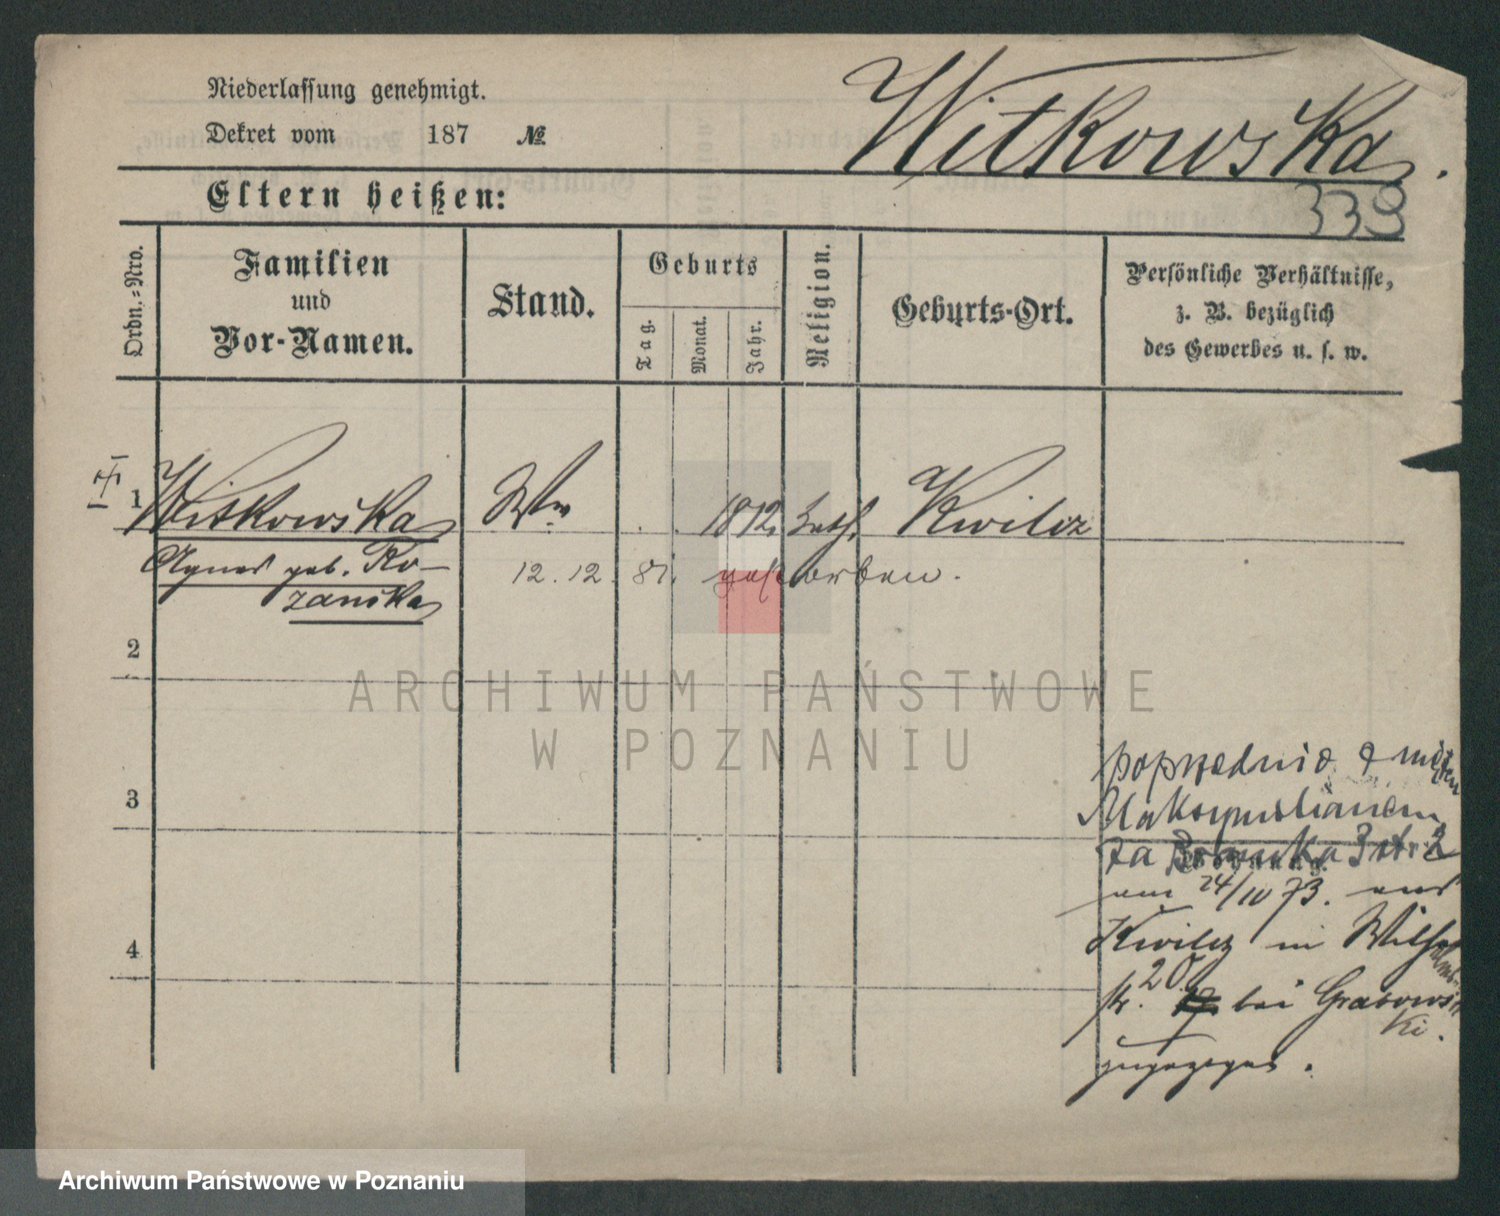 Niederlassung genehmigt.
Witkowska.
Dekret vom 187 №
339
Eltern heißen:
Ordn.-Nro.
Familien
und
Vor-Namen.
Stand.
Geburts
Tag.
Monat.
Jahr.
Religion.
Geburts-Ort.
Persönliche Verhältnisse,
z. B. bezüglich
des Gewerbes u. s. w.
1 Witkowska Ww 1812. kath. Kwilcz
Agnes geb. Ro-
zanska
12. 12. 81. gestorben.
2
ARCHIWUM PAŃSTWOWE
W POZNANIU
3
poprzednio z mężem
Maksymilianem
za Bramka 3 str 2
am 24/10 73. aus
4
Kwilcz in Wilhelm
str. 20. bei Grabows
ki.
zugezogen.
Archiwum Państwowe w Poznaniu